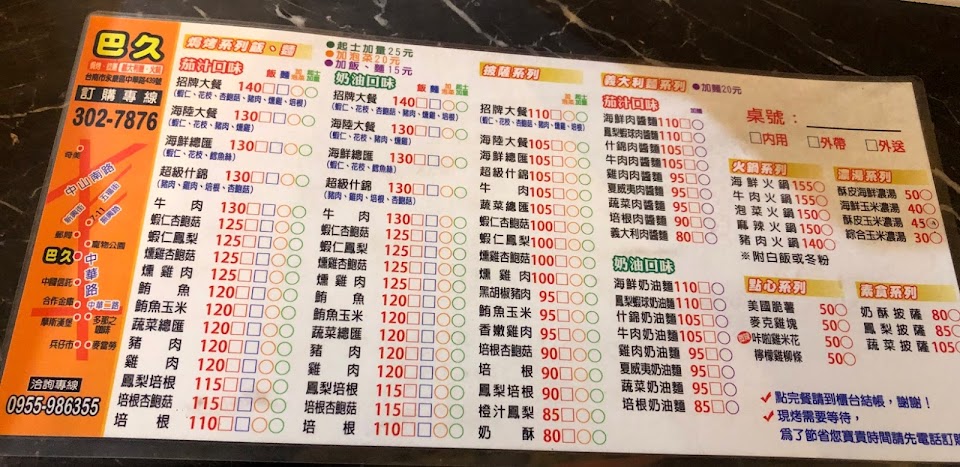 巴久
台南市永康區中華路439號
訂購專線
302-7876
奇美
中山南路
五福街
7-11
郵局
寵物公園
巴久
中華路
中國信託
合作金庫
中華二路
摩斯漢堡
多那之咖啡
兵仔市
麥當勞
洽詢專線
0955-986355
焗烤系列飯、麵
起士加量25元
加泡菜20元
加飯、麵15元
茄汁口味
飯 麵
招牌大餐 140
(蝦仁、花枝、杏鮑菇、豬肉、燻雞、培根)
海陸大餐 130
(蝦仁、花枝、豬肉、燻雞)
海鮮總匯 130
(蝦仁、花枝、鱈魚絲)
超級什錦 130
(豬肉、雞肉、培根、杏鮑菇)
牛肉 130
蝦仁杏鮑菇 125
蝦仁鳳梨 125
燻雞杏鮑菇 125
燻雞肉 125
鮪魚 120
鮪魚玉米 120
蔬菜總匯 120
豬肉 120
雞肉 120
鳳梨培根 115
培根杏鮑菇 115
培根 110
奶油口味
飯 麵
招牌大餐 140
(蝦仁、花枝、杏鮑菇、豬肉、燻雞、培根)
海陸大餐 130
(蝦仁、花枝、豬肉、燻雞)
海鮮總匯 130
(蝦仁、花枝、鱈魚絲)
超級什錦 130
(豬肉、雞肉、培根、杏鮑菇)
牛肉 130
蝦仁杏鮑菇 125
蝦仁鳳梨 125
燻雞杏鮑菇 125
燻雞肉 125
鮪魚 120
鮪魚玉米 120
蔬菜總匯 120
豬肉 120
雞肉 120
鳳梨培根 115
培根杏鮑菇 115
培根 110
披薩系列
招牌大餐 110
(蝦仁、花枝、杏鮑菇、豬肉、燻雞、培根)
海陸大餐 105
海鮮總匯 105
超級什錦 105
牛肉 105
蔬菜總匯 105
蝦仁杏鮑菇 100
蝦仁鳳梨 100
燻雞杏鮑菇 100
燻雞肉 100
黑胡椒豬肉 95
鮪魚玉米 95
香嫩雞肉 95
培根杏鮑菇 90
培根 90
鳳梨培根 90
橙汁鳳梨 85
奶酥 80
義大利麵系列
加麵20元
茄汁口味
加麵
海鮮肉醬麵 110
鳳梨蝦球肉醬麵 110
什錦肉醬麵 105
牛肉肉醬麵 105
雞肉肉醬麵 95
夏威夷肉醬麵 95
蔬菜肉醬麵 95
培根肉醬麵 90
義大利肉醬麵 80
奶油口味
海鮮奶油麵 110
鳳梨蝦球奶油麵 110
什錦奶油麵 105
牛肉奶油麵 105
雞肉奶油麵 95
夏威夷奶油麵 95
蔬菜奶油麵 85
培根奶油麵 85
桌號:
內用 外帶 外送
火鍋系列
海鮮火鍋 155
牛肉火鍋 155
泡菜火鍋 150
麻辣火鍋 150
豬肉火鍋 140
※附白飯或冬粉
濃湯系列
酥皮海鮮濃湯 50
海鮮玉米濃湯 40
酥皮玉米濃湯 45
綜合玉米濃湯 30
點心系列
美國脆薯 50
麥克雞塊 50
咔啦雞米花 50
檸檬雞柳條 50
素食系列
奶酥披薩 80
鳳梨披薩 85
蔬菜披薩 105
點完餐請到櫃台結帳，謝謝！
現烤需要等待，
為了節省您寶貴時間請先電話訂購